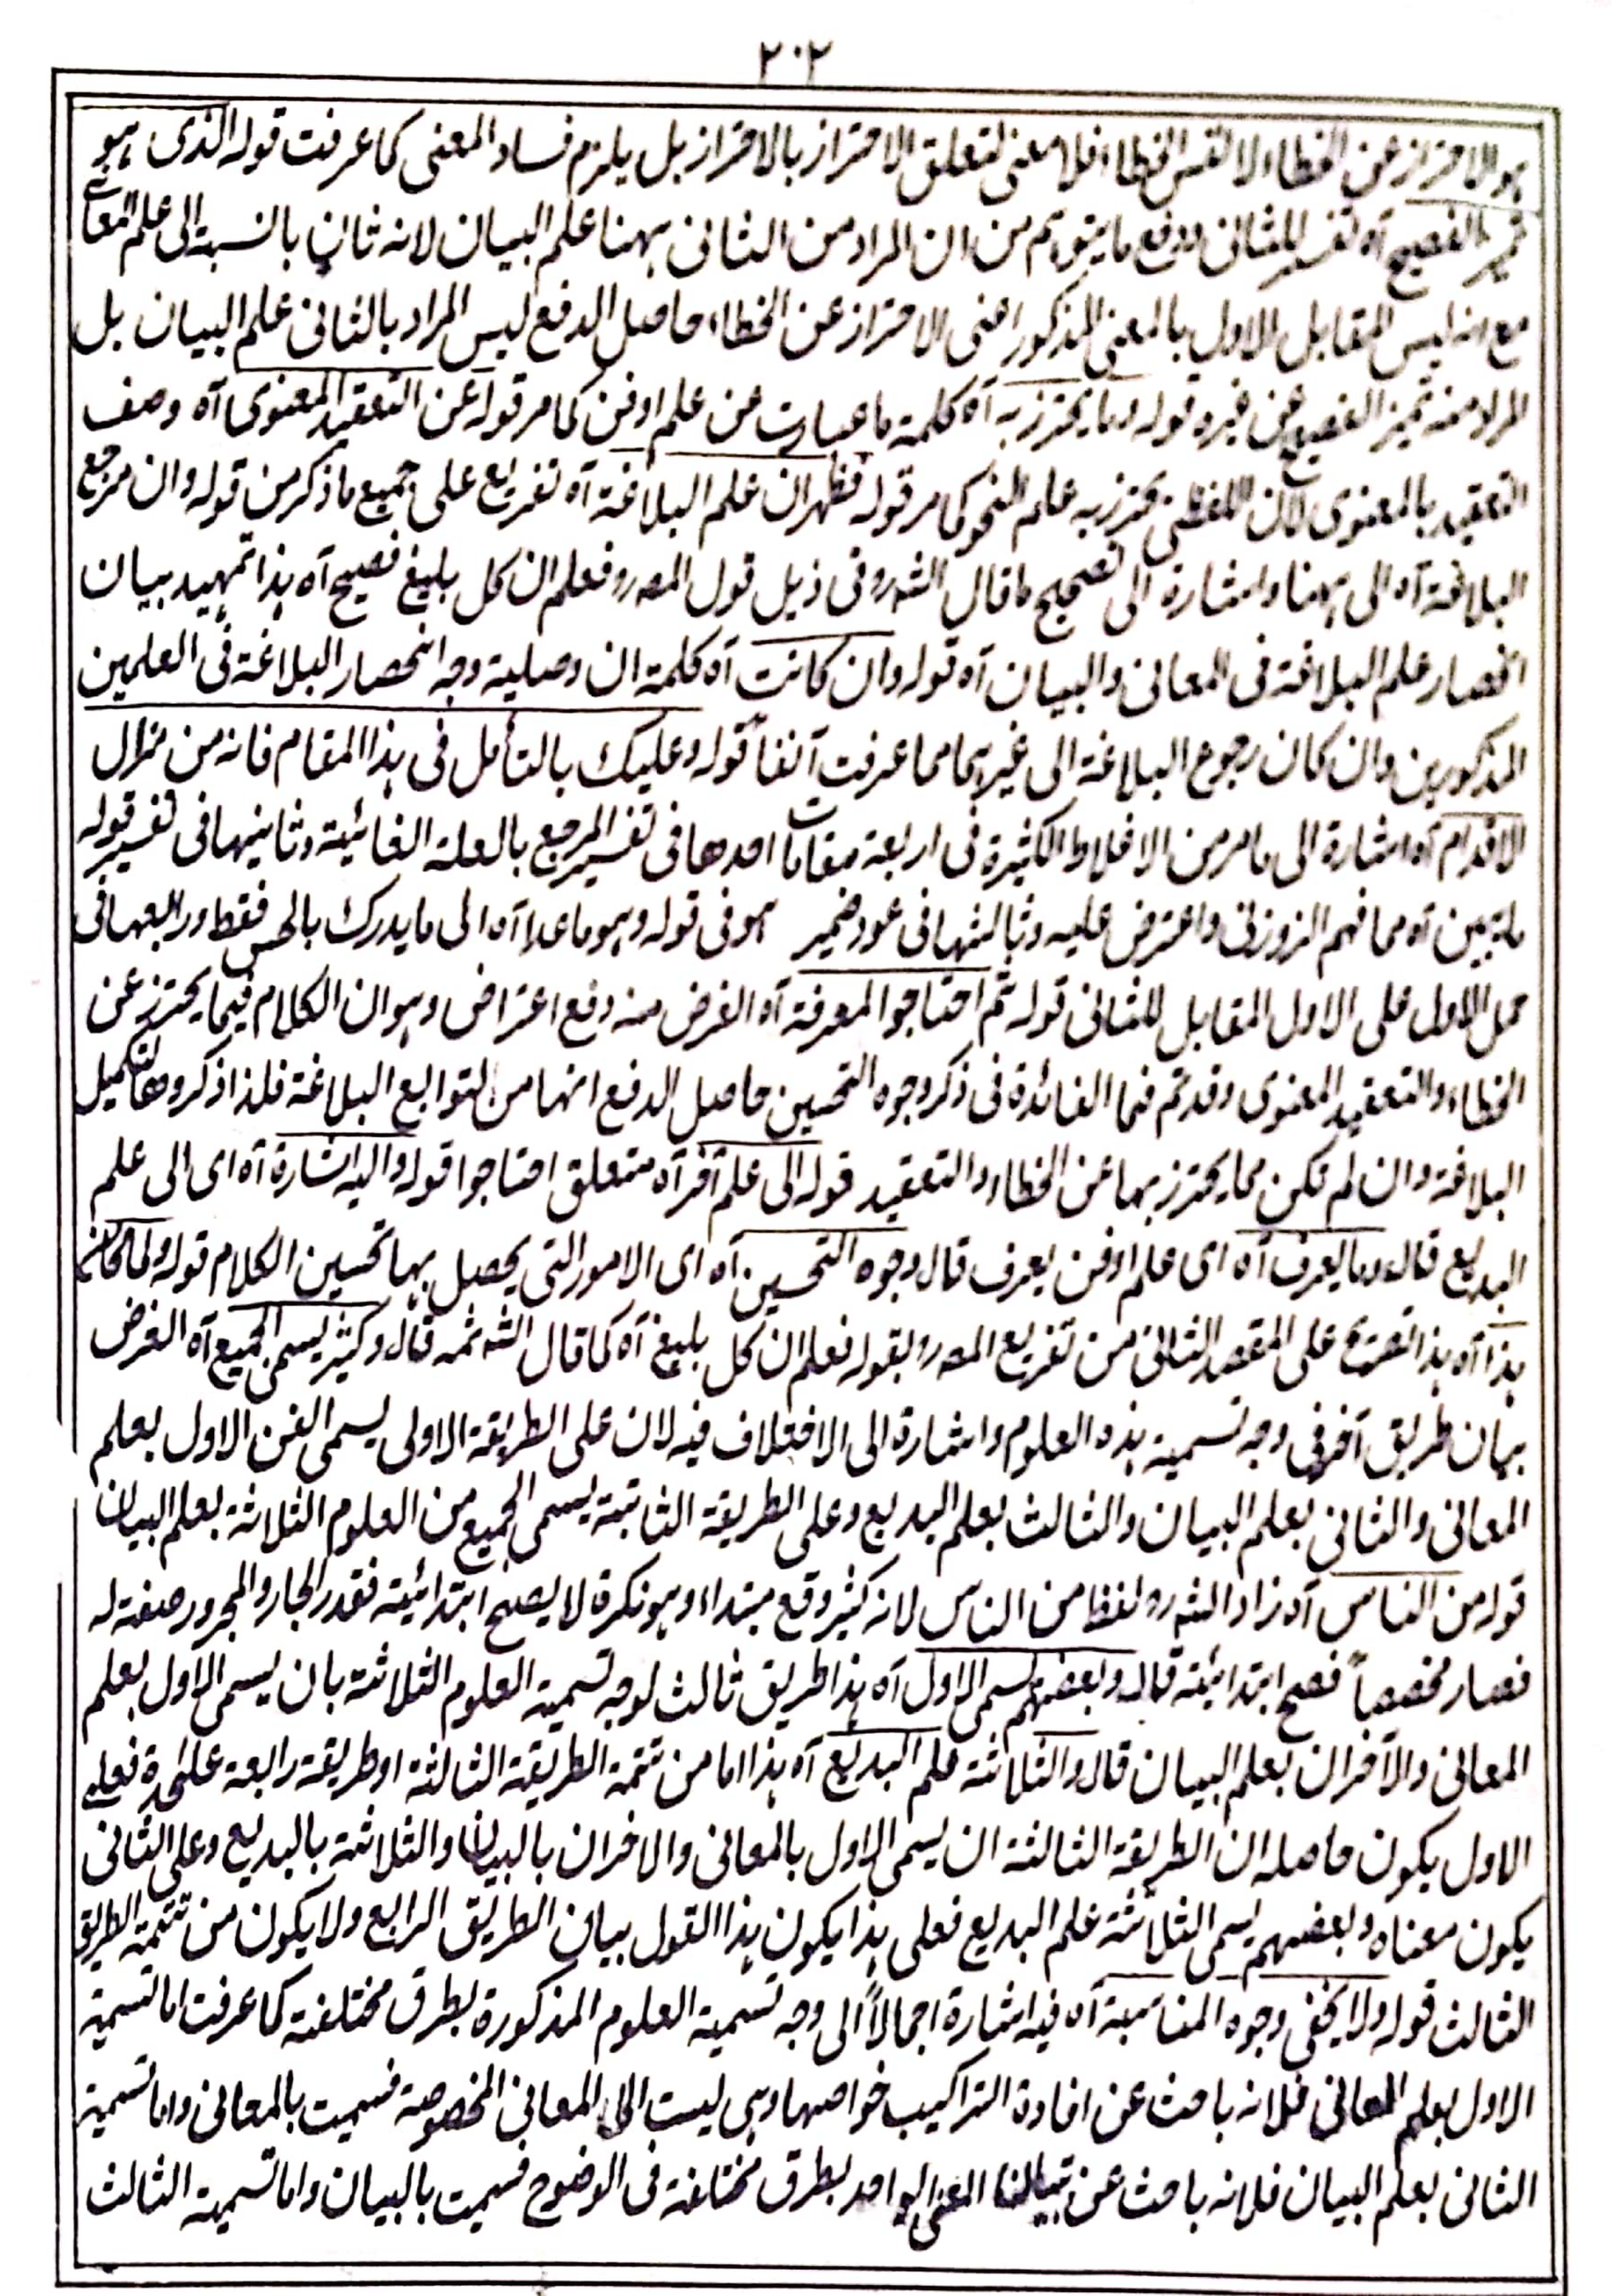 ٢٠٢
هو الاحتراز عن الخطاء لا نفس الخطاء فلا معنى لتعلق الاحتراز بالاحتراز بل يلزم فساد المعنى كما عرفت قوله الذى هو
تميز الفصيح آه تفسير للثانى ودفع ما يتوهم من ان المراد من الثانى ههنا علم البيان لانه ثانٍ بالنسبة الى علم المعانى
مع انه ليس المقابل الاول بالمعنى المذكور اعنى الاحتراز عن الخطاء حاصل الدفع ليس المراد بالثانى علم البيان بل
المراد منه تميز الفصيح عن غيره قوله وما يحترز به آه كلمة ما عبارت عن علم او فن كما مر قوله عن التعقيد المعنوى آه وصف
التعقيد بالمعنوى لان اللفظى يحترز به علم النحو كما مر قوله فظهر ان علم البلاغة آه تفريع على جميع ما ذكر من قوله وان مرجع
البلاغة آه الى ههنا واشارة الى تصحيح ما قال الشه رو فى ذيل قول المصه رو فعلم ان كل بليغ فصيح آه هذا تمهيد بيان
انحصار علم البلاغة فى المعانى والبيان آه قوله وان كانت آه كلمة ان وصلية وجه انحصار البلاغة فى العلمين
المذكورين وان كان رجوع البلاغة الى غيرهما مما عرفت آنفاً قوله وعليك بالتأمل فى هذا المقام فانه من مزال
الاقدام آه اشارة الى ما مر من الاغلاط الكثيرة فى اربعة مقامات احدها فى تفسير المرجع بالعلة الغائية وثانيها فى تفسير قوله
ما يبين آه مما فهم الزوزنى واعترض عليه وثالثها فى عود ضمير هو فى قوله وهو ما عدا آه الى ما يدرك بالحس فقط ورابعها فى
حمل الاول على الاول المقابل للثانى قوله ثم احتاجوا المعرفة آه الغرض منه دفع اعتراض وهو ان الكلام فيما يحترز عن
الخطاء والتعقيد المعنوى وقد تم فما الفائدة فى ذكر وجوه التحسين حاصل الدفع انها من التوابع البلاغة فلذا ذكروها لتكميل
البلاغة وان لم تكن مما يحترز بها عن الخطاء والتعقيد قوله الى علم آخر آه متعلق احتاجوا قوله واليه اشارة آه اى الى علم
البديع قال وما يعرف آه اى علم او فن يعرف قال وجوه التحسين آه اى الامور التى يحصل بها تحسين الكلام قوله ولما كان
هذا آه هذا تفريع على المقصد الثانى من تفريع المصه رو بقوله فعلم ان كل بليغ آه كما قال الشه ثمه قال وكثير يسمى الجميع آه الغرض
بيان طريق آخر فى وجه تسمية هذه العلوم واشارة الى الاختلاف فيه لان على الطريقة الاولى يسمى الفن الاول بعلم
المعانى والثانى بعلم البيان والثالث بعلم البديع وعلى الطريقة الثانية يسمى الجميع من العلوم الثلاثة بعلم البيان
قوله من الناس آه زاد الشه رو لفظ من الناس لانه كثير وقع مبتداء وهو نكرة لا يصح ابتدائية فقدر الجار والمجرور صفة له
فصار مخصصاً فصح ابتدائية قال وبعضهم يسمى الاول آه هذا طريق ثالث لوجه تسمية العلوم الثلاثة بان يسمى الاول بعلم
المعانى والآخران بعلم البيان قال والثلاثة علم البديع آه هذا اما من تتمة الطريقة الثالثة او طريقة رابعة علٰحدة فعلى
الاول يكون حاصله ان الطريقة الثالثة ان يسمى الاول بالمعانى والاخران بالبيان والثلاثة بالبديع وعلى الثانى
يكون معناه وبعضهم يسمى الثلاثة علم البديع فعلى هذا يكون هذا القول بيان الطريق الرابع ولا يكون من تتمة الطريق
الثالث قوله ولا يخفى وجوه المناسبة آه فيه اشارة اجمالاً الى وجه تسمية العلوم المذكورة بطرق مختلفة كما عرفت اما تسمية
الاول بعلم المعانى فلانه باحث عن افادة التراكيب خواصها وهى ليست الى المعانى المخصوصة فسميت بالمعانى واما تسمية
الثانى بعلم البيان فلانه باحث عن المعنى الواحد بطرق مختلفة فى الوضوح فسميت بالبيان واما تسمية الثالث